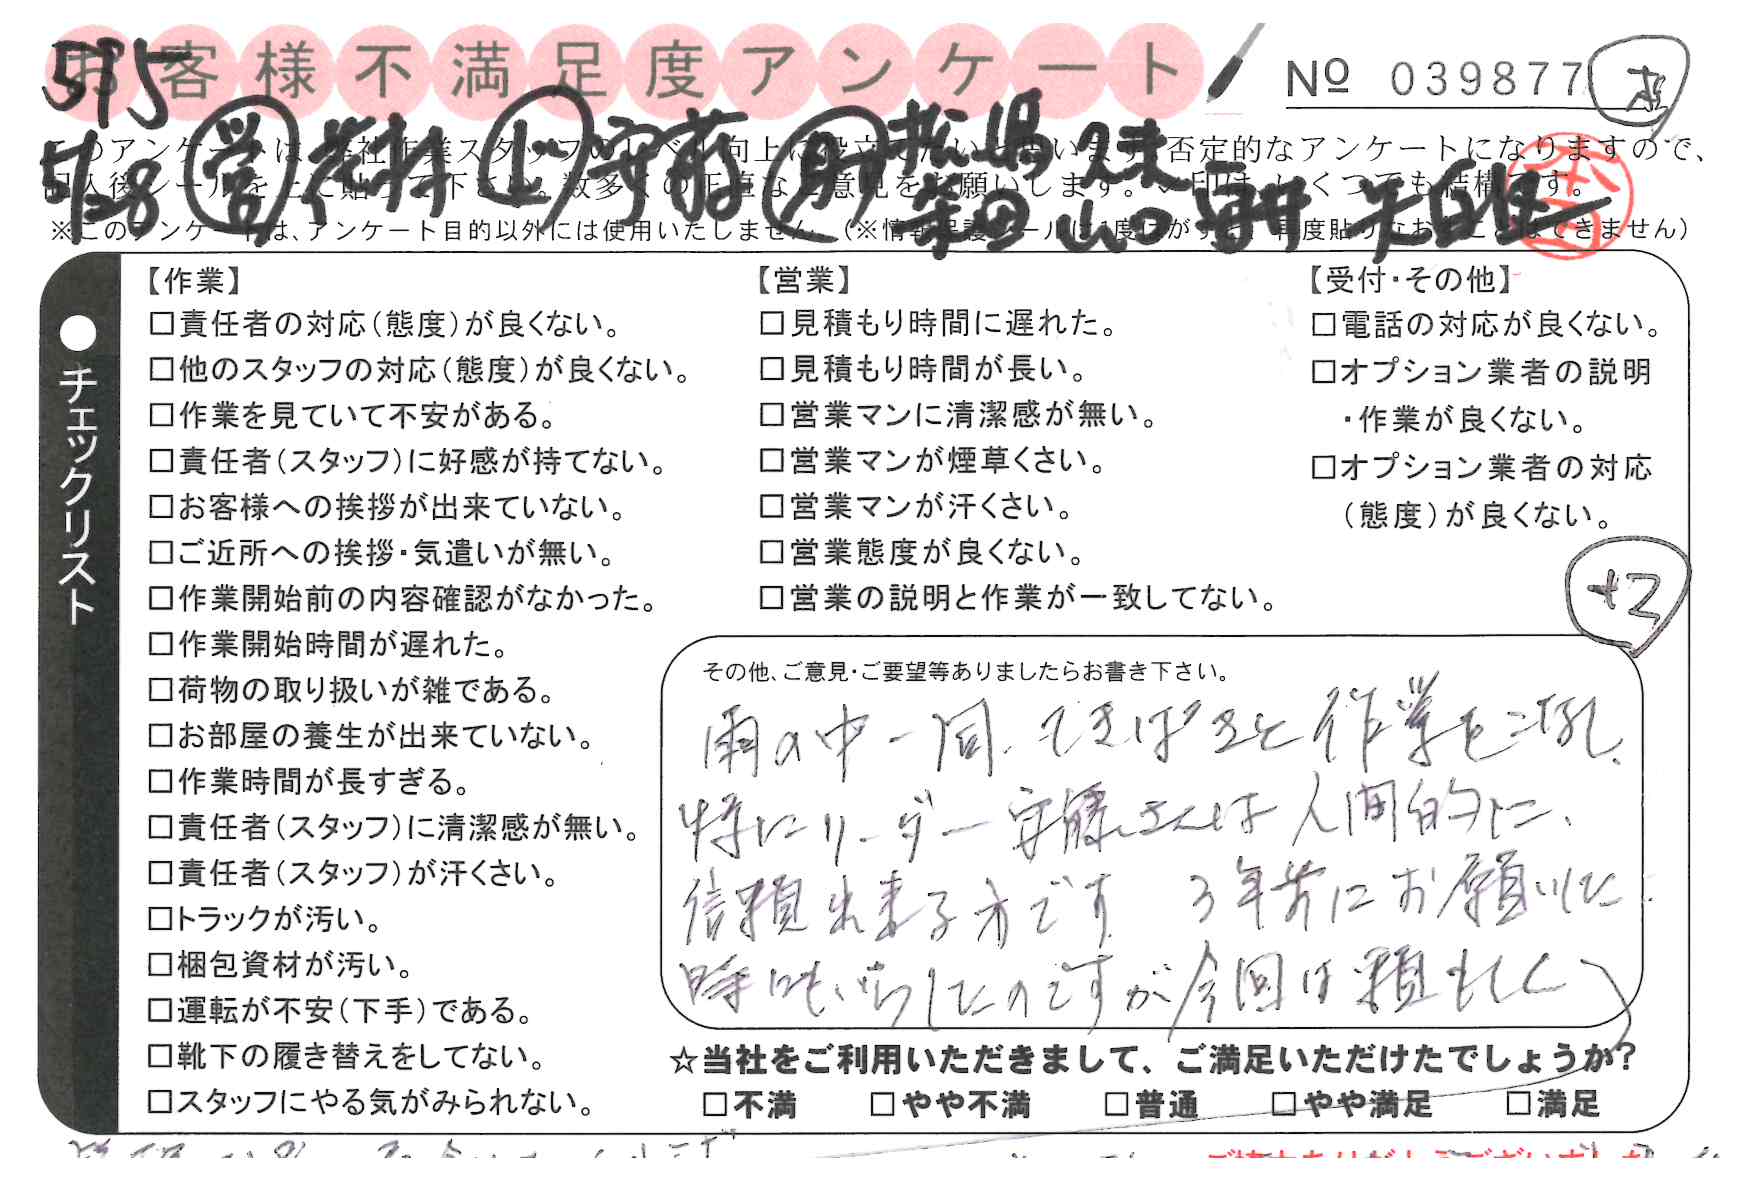 お客様不満足度アンケート
№ 039877
5/15
5/28 営 上
このアンケートは、弊社作業スタッフのレベル向上に役立てたいと思います。否定的なアンケートになりますので、
記入後シールを上に貼って下さい。数多くの正直なご意見をお願いします。✓印は、いくつでも結構です。
※このアンケートは、アンケート目的以外には使用いたしません。(※情報保護シールは1度はがすと、再度貼りなおすことはできません)
●チェックリスト
【作業】
□責任者の対応(態度)が良くない。
□他のスタッフの対応(態度)が良くない。
□作業を見ていて不安がある。
□責任者(スタッフ)に好感が持てない。
□お客様への挨拶が出来ていない。
□ご近所への挨拶・気遣いが無い。
□作業開始前の内容確認がなかった。
□作業開始時間が遅れた。
□荷物の取り扱いが雑である。
□お部屋の養生が出来ていない。
□作業時間が長すぎる。
□責任者(スタッフ)に清潔感が無い。
□責任者(スタッフ)が汗くさい。
□トラックが汚い。
□梱包資材が汚い。
□運転が不安(下手)である。
□靴下の履き替えをしてない。
□スタッフにやる気がみられない。
【営業】
□見積もり時間に遅れた。
□見積もり時間が長い。
□営業マンに清潔感が無い。
□営業マンが煙草くさい。
□営業マンが汗くさい。
□営業態度が良くない。
□営業の説明と作業が一致してない。
【受付・その他】
□電話の対応が良くない。
□オプション業者の説明
・作業が良くない。
□オプション業者の対応
(態度)が良くない。
+2
その他、ご意見・ご要望等ありましたらお書き下さい。
雨の中一同、てきぱきと作業をこなし、
特にリーダー安藤さんは人間的に、
信頼出来る方です 3年前にお願いした
時にもいらしたのですが今回は頼もしく
☆当社をご利用いただきまして、ご満足いただけたでしょうか?
□不満 □やや不満 □普通 □やや満足 □満足